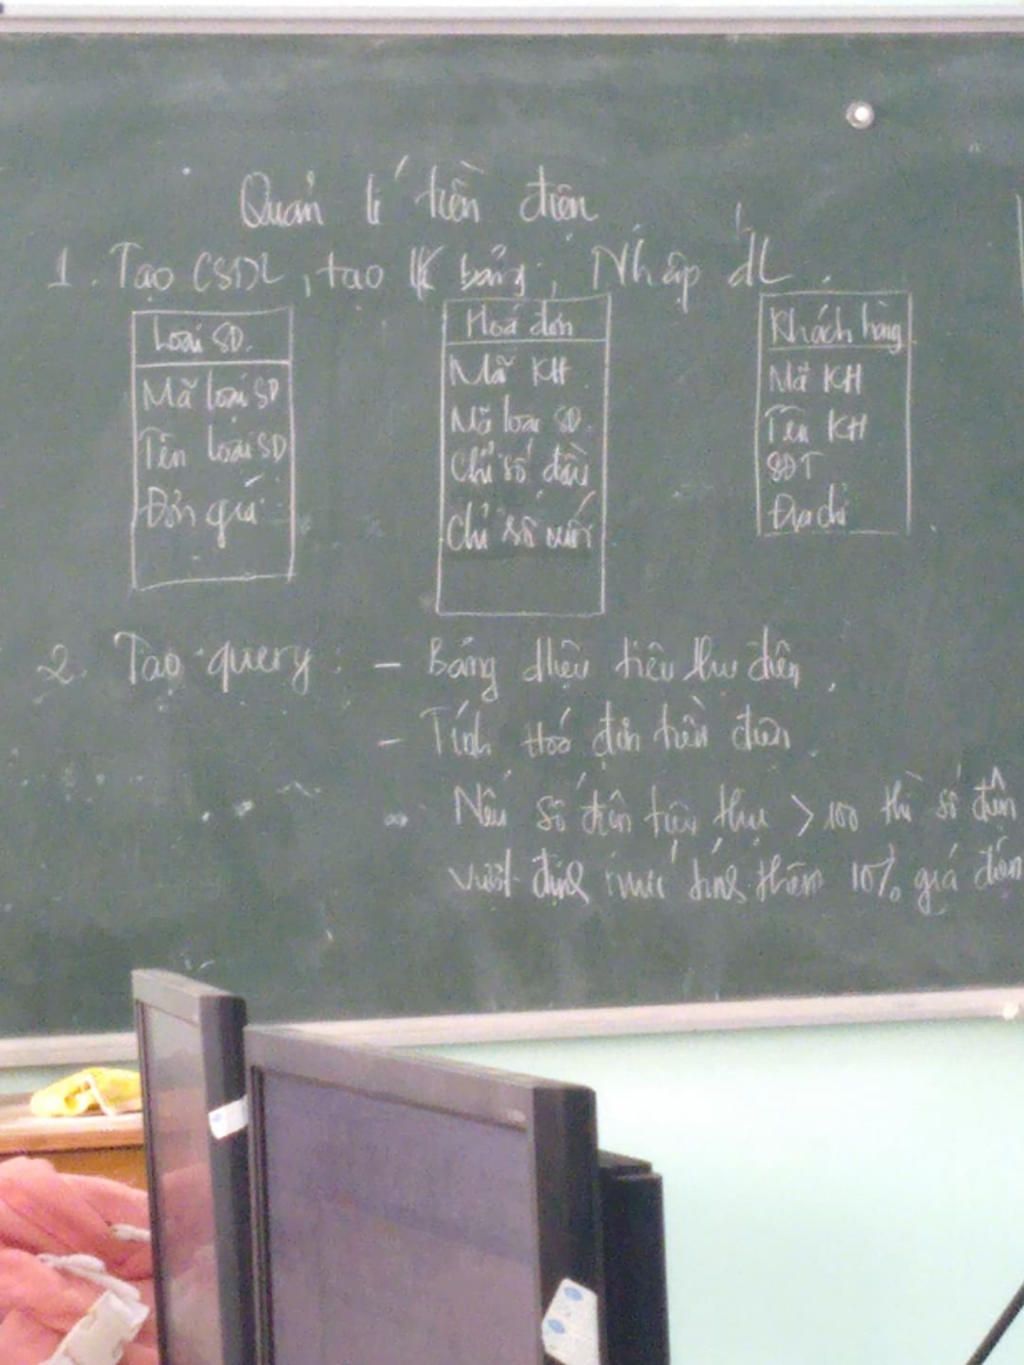 Quản lí tiền điện
1. Tạo CSDL, tạo lk bảng, Nhập dL.
Loại SD.
Mã loại SD
Tên loại SD
Đơn giá
Hoá đơn
Mã KH
Mã loại SD.
Chỉ số đầu
Chỉ số cuối
Khách hàng
Mã KH
Tên KH
SĐT
Địa chỉ
2. Tạo query: - Bảng tiêu thụ điện.
- Tính Hoá đơn tiền điện
Nếu số điện tiêu thụ > 100 thì số điện
vượt định mức tính thêm 10% giá điện